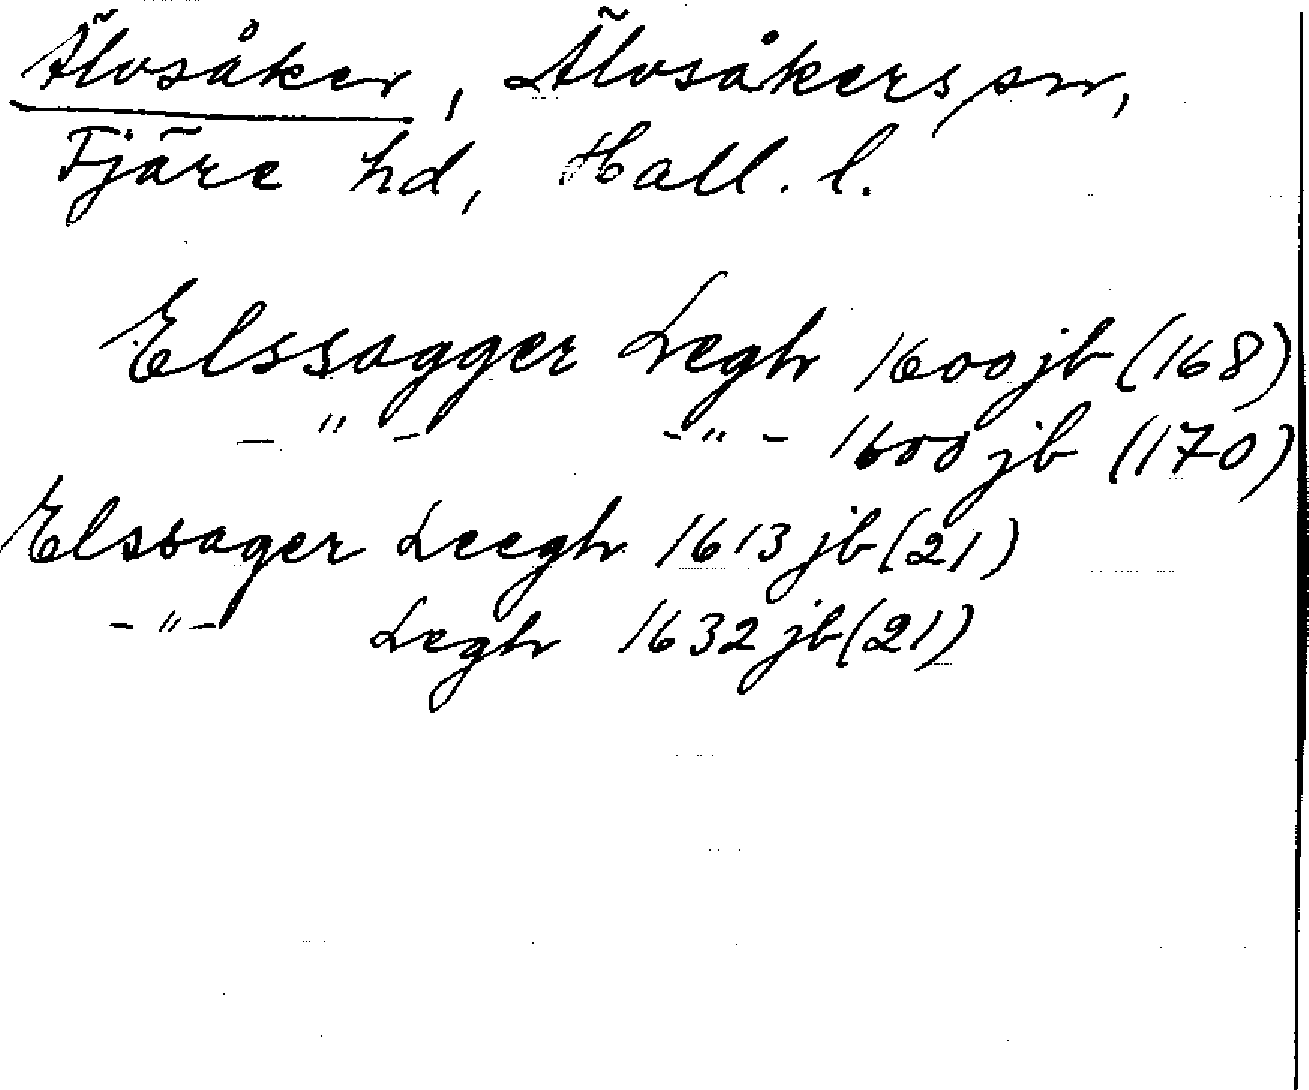 Älvsåker, Älvsåkers sn,
Fjäre hd, Hall. l.
Elssagger Legh 1600 jb (168)
— " — - " - 1600 jb (170)
Elssager Leegh 1613 jb (21)
- " - Legh 1632 jb (21)